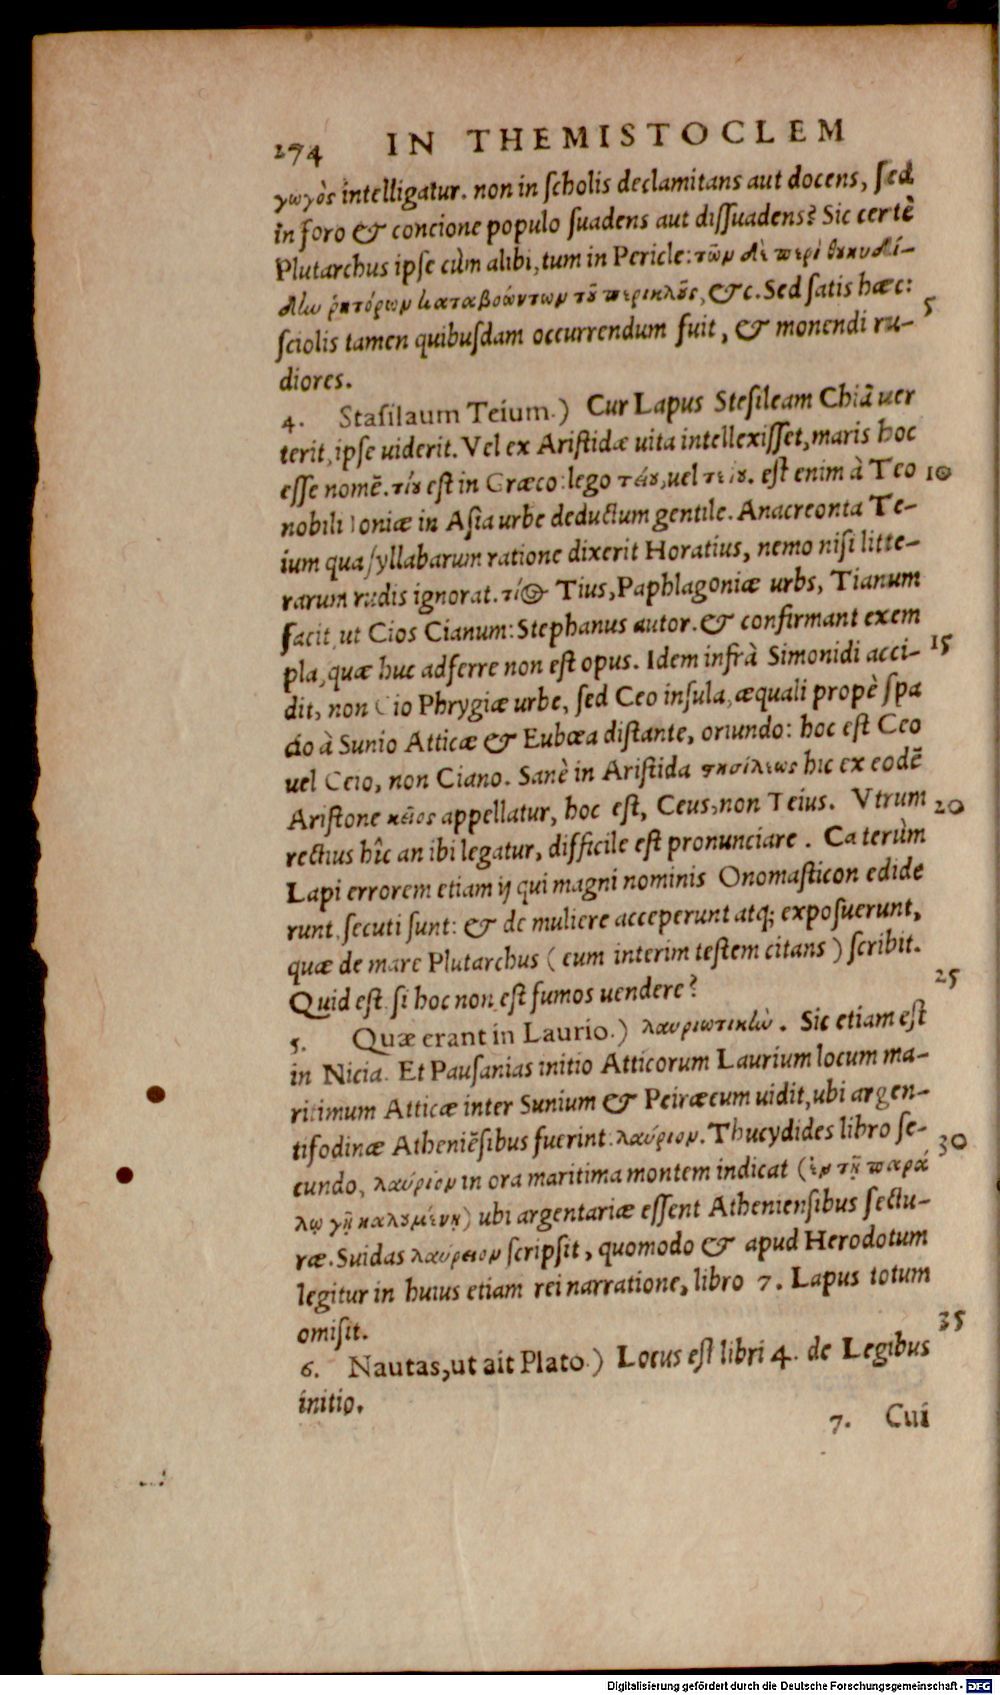 274 IN THEMISTOCLEM
γωγὸς intelligatur. non in scholis declamitans aut docens, sed
in foro & concione populo suadens aut dissuadens? Sic certè
Plutarchus ipse cùm alibi, tum in Pericle: τῶν δὲ περὶ θουκυδί-
δην ῥητόρων καταβοώντων τοῦ περικλοῦς, &c. Sed satis hæc:
5
sciolis tamen quibusdam occurrendum fuit, & monendi ru-
diores.
4. Stasilaum Teium.) Cur Lapus Stesileam Chiā uer
terit, ipse uiderit. Vel ex Aristidæ uita intellexisset, maris hoc
esse nomē. τίου est in Græco: lego τέου, uel τείου. est enim à Teo 10
nobili Ioniæ in Asia urbe deductum gentile. Anacreonta Te-
ium qua syllabarum ratione dixerit Horatius, nemo nisi litte-
rarum rudis ignorat. τίος Tius, Paphlagoniæ urbs, Tianum
facit, ut Cios Cianum: Stephanus autor. & confirmant exem
pla, quæ huc adferre non est opus. Idem infrà Simonidi acci- 15
dit, non Cio Phrygiæ urbe, sed Ceo insula, æquali propè spa
cio à Sunio Atticæ & Eubœa distante, oriundo: hoc est Ceo
uel Ceio, non Ciano. Sanè in Aristida στησίλεως hic ex eodē
Aristone κεῖος appellatur, hoc est, Ceus, non Teius. Vtrum 20
rectius hîc an ibi legatur, difficile est pronunciare. Cæterùm
Lapi errorem etiam ij qui magni nominis Onomasticon edide
runt, secuti sunt: & de muliere acceperunt atq; exposuerunt,
quæ de mare Plutarchus (eum interim testem citans) scribit.
Quid est, si hoc non est fumos uendere?
25
5. Quæ erant in Laurio.) λαυριωτικὴν. Sic etiam est
in Nicia. Et Pausanias initio Atticorum Laurium locum ma-
ritimum Atticæ inter Sunium & Peiræeum uidit, ubi argen-
tifodinæ Atheniēsibus fuerint: λαύριον. Thucydides libro se- 30
cundo, λαύριον in ora maritima montem indicat (ἐν τῇ παρά
λῳ γῇ καλουμένῃ) ubi argentariæ essent Atheniensibus sectu-
ræ. Suidas λαύρειον scripsit, quomodo & apud Herodotum
legitur in huius etiam rei narratione, libro 7. Lapus totum
omisit.
35
6. Nautas, ut ait Plato.) Locus est libri 4. de Legibus
initio.
7. Cui
Digitalisierung gefördert durch die Deutsche Forschungsgemeinschaft - DFG